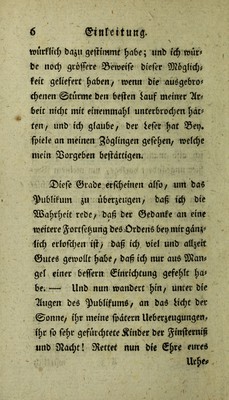 6 Einleitung.
würklich dazu gestimmt habe; und ich wür-
de noch grössere Beweise dieser Möglich-
keit geliefert haben, wenn die ausgebro-
chenen Stürme den besten Lauf meiner Ar-
beit nicht mit einemmahl unterbrochen hät-
ten, und ich glaube, der Leser hat Bey-
spiele an meinen Zöglingen gesehen, welche
mein Vorgeben bestättigen.
Diese Grade erscheinen also, um das
Publikum zu überzeugen, daß ich die
Wahrheit rede, daß der Gedanke an eine
weitere Fortsetzung des Ordens bey mir gänz-
lich erloschen ist, daß ich viel und allzeit
Gutes gewollt habe, daß ich nur aus Man-
gel einer bessern Einrichtung gefehlt ha-
be. — Und nun wandert hin, unter die
Augen des Publikums, an das Licht der
Sonne, ihr meine spätern Ueberzeugungen,
ihr so sehr gefürchtete Kinder der Finsterniß
und Nacht! Rettet nun die Ehre eures
Urhe-